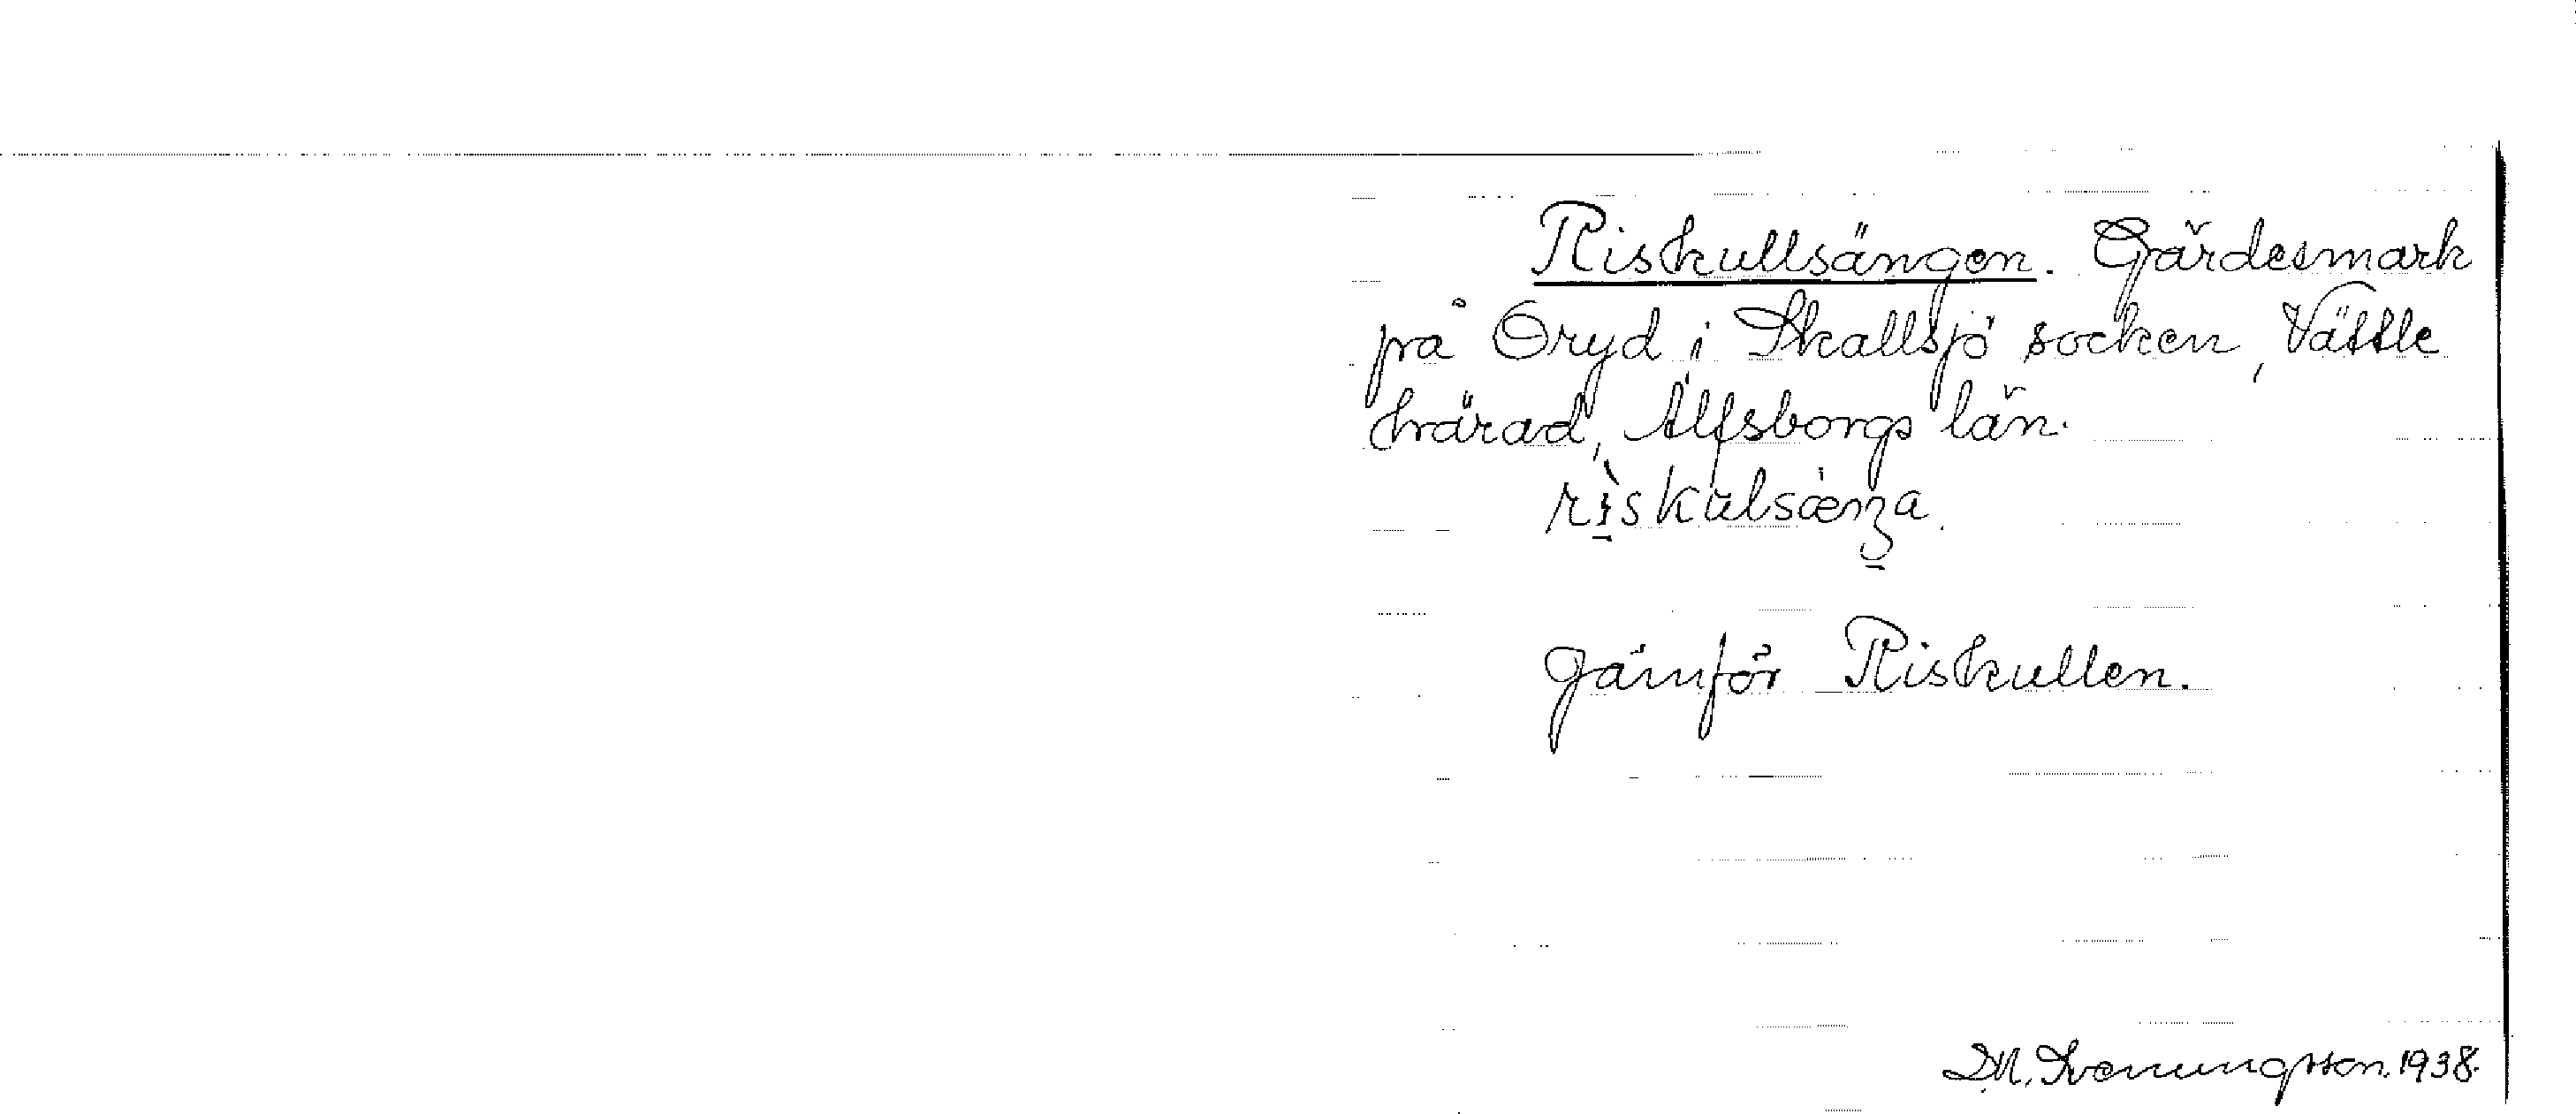 Riskullsängen. Gärdesmark
på Öryd i Skallsjö socken, Vättle
härad, Älfsborgs län.
rìskulsæŋa.
Jämför Riskullen.
D.N. Svenungsson. 1938.